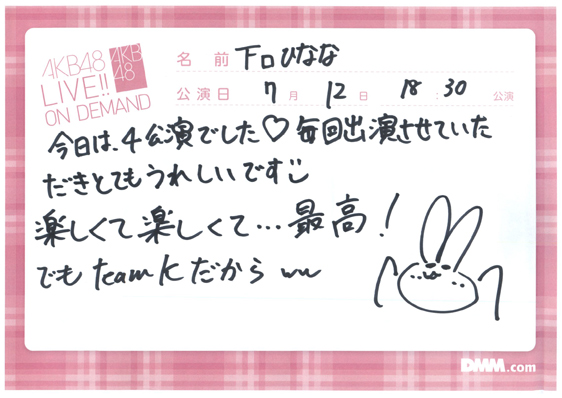 AKB48
LIVE!!
ON DEMAND
AKB
48
名 前 下口ひなな
公演日 7 月 12 日 18 : 30 公演
今日は、4公演でした♡毎回出演させていた
だきとてもうれしいです
楽しくて楽しくて…最高!
でも teamKだから ww
DMM.com